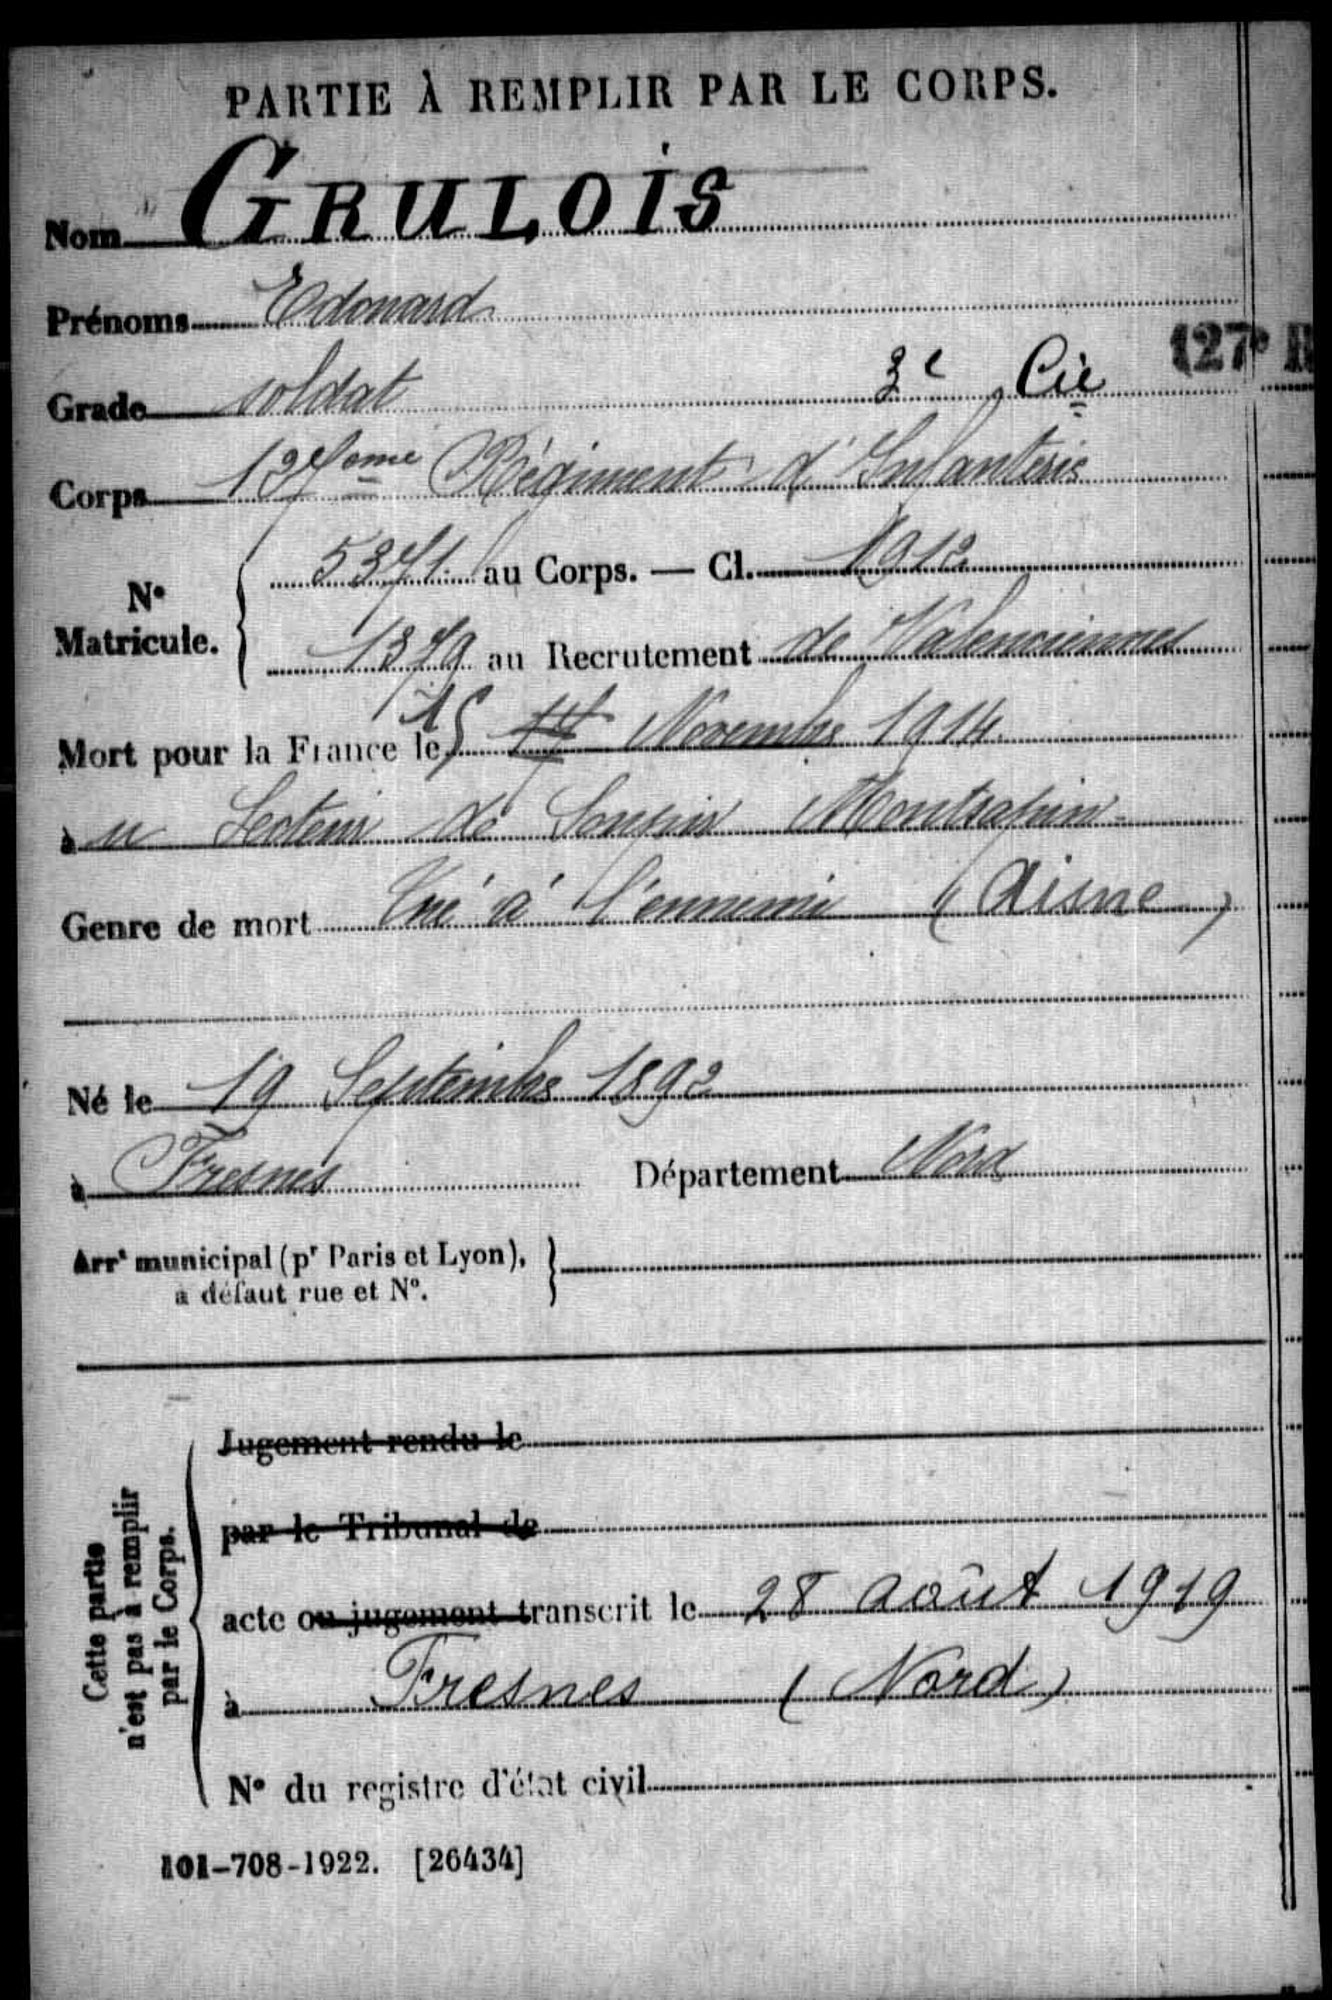 PARTIE À REMPLIR PAR LE CORPS.
Nom GRULOIS
Prénoms Edouard
Grade soldat 3e Cie
127e
Corps 127ème Régiment d'Infanterie
N° Matricule.
5371 au Corps. — Cl. 1912
1379 au Recrutement de Valenciennes
Mort pour la France le 15 14 Novembre 1914
à Secteur de Soupir
Genre de mort Tué à l'ennemi (Aisne)
Né le 19 Septembre 1892
à Fresnes Département Nord
Arrt municipal (pr Paris et Lyon),
à défaut rue et N°.
Cette partie
n'est pas à remplir
par le Corps.
Jugement rendu le
par le Tribunal de
acte ou jugement transcrit le 28 août 1919
à Fresnes (Nord)
N° du registre d'état civil
101-708-1922. [26434]